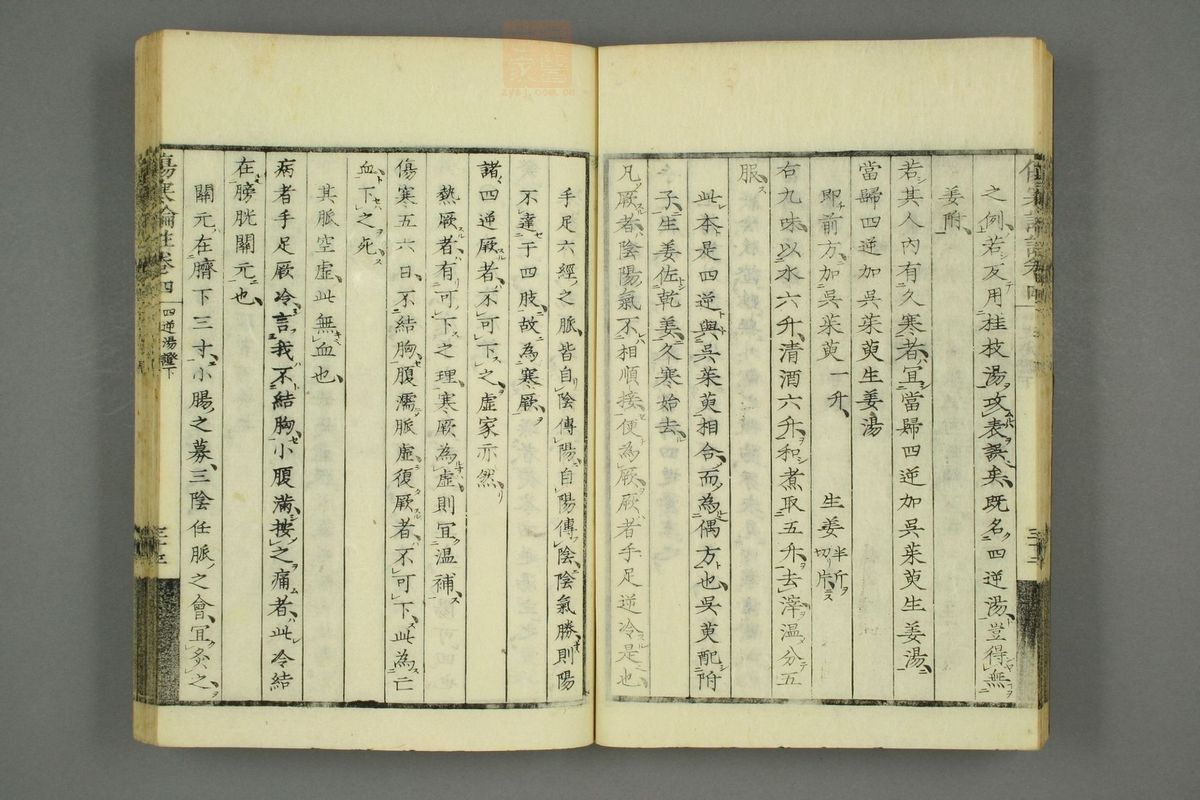 之例若反用桂枝湯攻表誤矣既名四逆湯豈得無
姜附
若其人內有久寒者冝當歸四逆加呉茱萸生姜湯
當歸四逆加呉茱萸生姜湯
即前方加呉茱萸一升 生姜半斤切片
右九味以水六升清酒六升和煮取五升去滓温分五
服
此本是四逆與呉茱萸相合而為偶方也呉萸配附
子生姜佐乾姜久寒始去
凡厥者陰陽氣不相順接便為厥厥者手足逆冷是也
手足六經之脈皆自陰傳陽自陽傳陰陰氣勝則陽
不達于四肢故為寒厥
諸四逆厥者不可下之虛家亦然
熱厥者有可下之理寒厥為虛則冝温補
傷寒五六日不結胸腹濡脈虛復厥者不可下此為亡
血下之死
其脈空虛此無血也
病者手足厥冷言我不結胸小腹滿按之痛者此冷結
在膀胱關元也
關元在臍下三寸小腸之募三陰任脈之會冝炙之
傷寒論註卷四 四逆湯證下 三十三